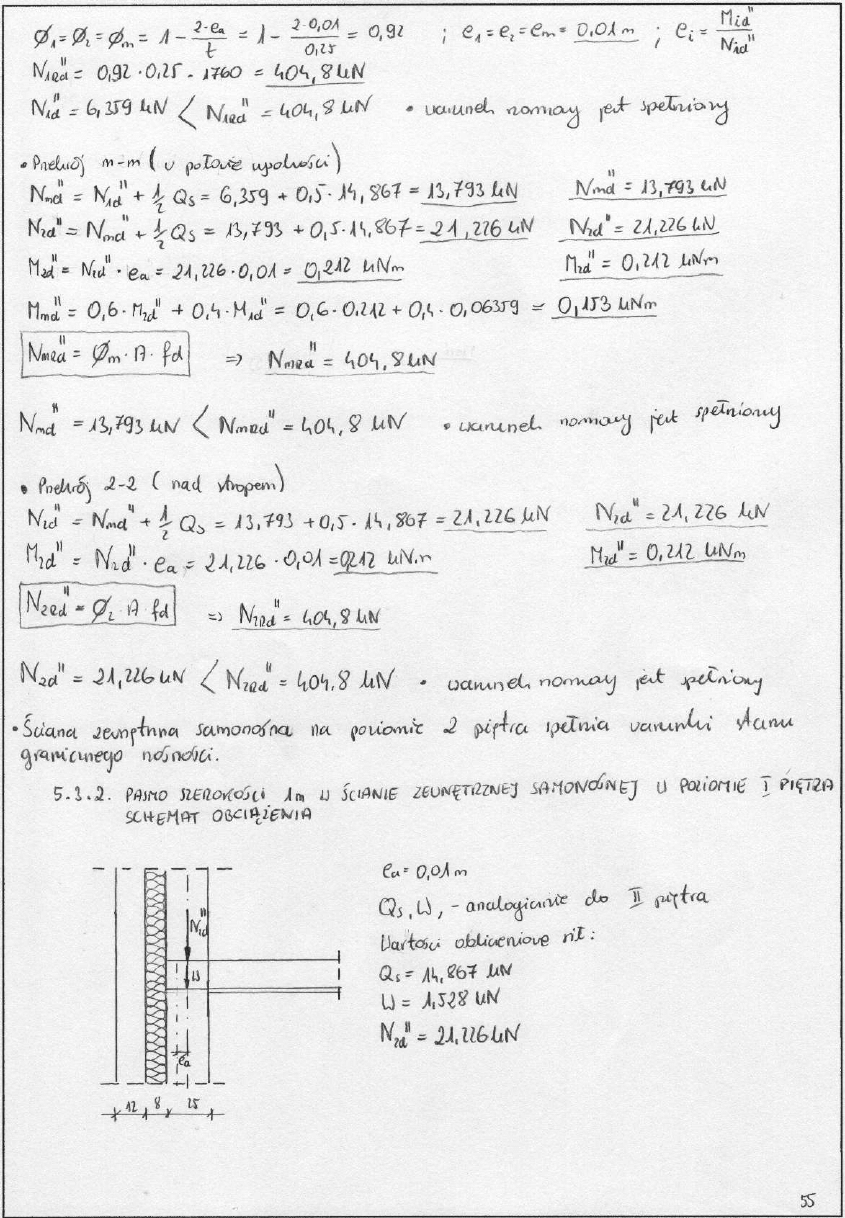 Ø₁=Ø₂=Øm= 1 - 2·ea/t = 1 - 2·0,01/0,25 = 0,92 ; e₁=e₂=em= 0,01m ; ei = Mid"/Nid"
N1Rd" = 0,92·0,25·1760 = 404,8 kN
N1d" = 6,359 kN < N1Rd" = 404,8 kN • warunek normowy jest spełniony
• Przekrój m-m (w połowie wysokości)
Nmd" = N1d" + 1/2 Qs = 6,359 + 0,5·14,867 = 13,793 kN Nmd" = 13,793 kN
N2d" = Nmd" + 1/2 Qs = 13,793 + 0,5·14,867 = 21,226 kN N2d" = 21,226 kN
M2d" = N2d"·ea = 21,226·0,01 = 0,212 kNm M2d" = 0,212 kNm
Mmd" = 0,6·M2d" + 0,4·M1d" = 0,6·0,212 + 0,4·0,06359 = 0,153 kNm
NmRd" = Øm·A·fd => NmRd" = 404,8 kN
Nmd" = 13,793 kN < NmRd" = 404,8 kN • warunek normowy jest spełniony
• Przekrój 2-2 (nad stropem)
N2d" = Nmd" + 1/2 Qs = 13,793 + 0,5·14,867 = 21,226 kN N2d" = 21,226 kN
M2d" = N2d"·ea = 21,226·0,01 = 0,212 kN·m M2d" = 0,212 kNm
N2Rd" = Ø₂·A·fd => N2Rd" = 404,8 kN
N2d" = 21,226 kN < N2Rd" = 404,8 kN • warunek normowy jest spełniony
• Ściana zewnętrzna samonośna na poziomie 2 piętra spełnia warunki stanu
granicznego nośności.
5.3.2. PASMO SZEROKOŚCI 1m W ŚCIANIE ZEWNĘTRZNEJ SAMONOŚNEJ W POZIOMIE I PIĘTRA
SCHEMAT OBCIĄŻENIA
ea = 0,01m
Qs, W, - analogicznie do II piętra
Wartości obliczeniowe sił:
Qs = 14,867 kN
W = 1,528 kN
N2d" = 21,226 kN
N1d"
W
ea
12 8 25
55